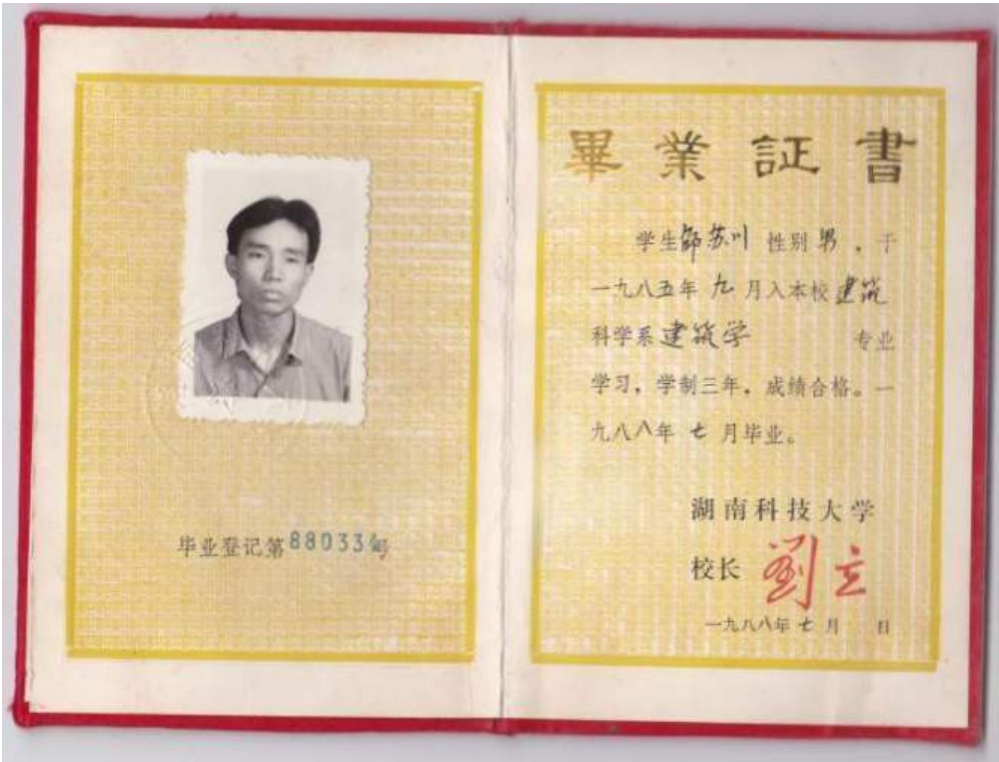 毕业登记第880334号
畢業証書
学生邹苏川 性别男，于
一九八五年 九 月入本校建筑
科学系建筑学 专业
学习，学制三年，成绩合格。一
九八八年 七 月毕业。
湖南科技大学
校长 劉立
一九八八年七月 日